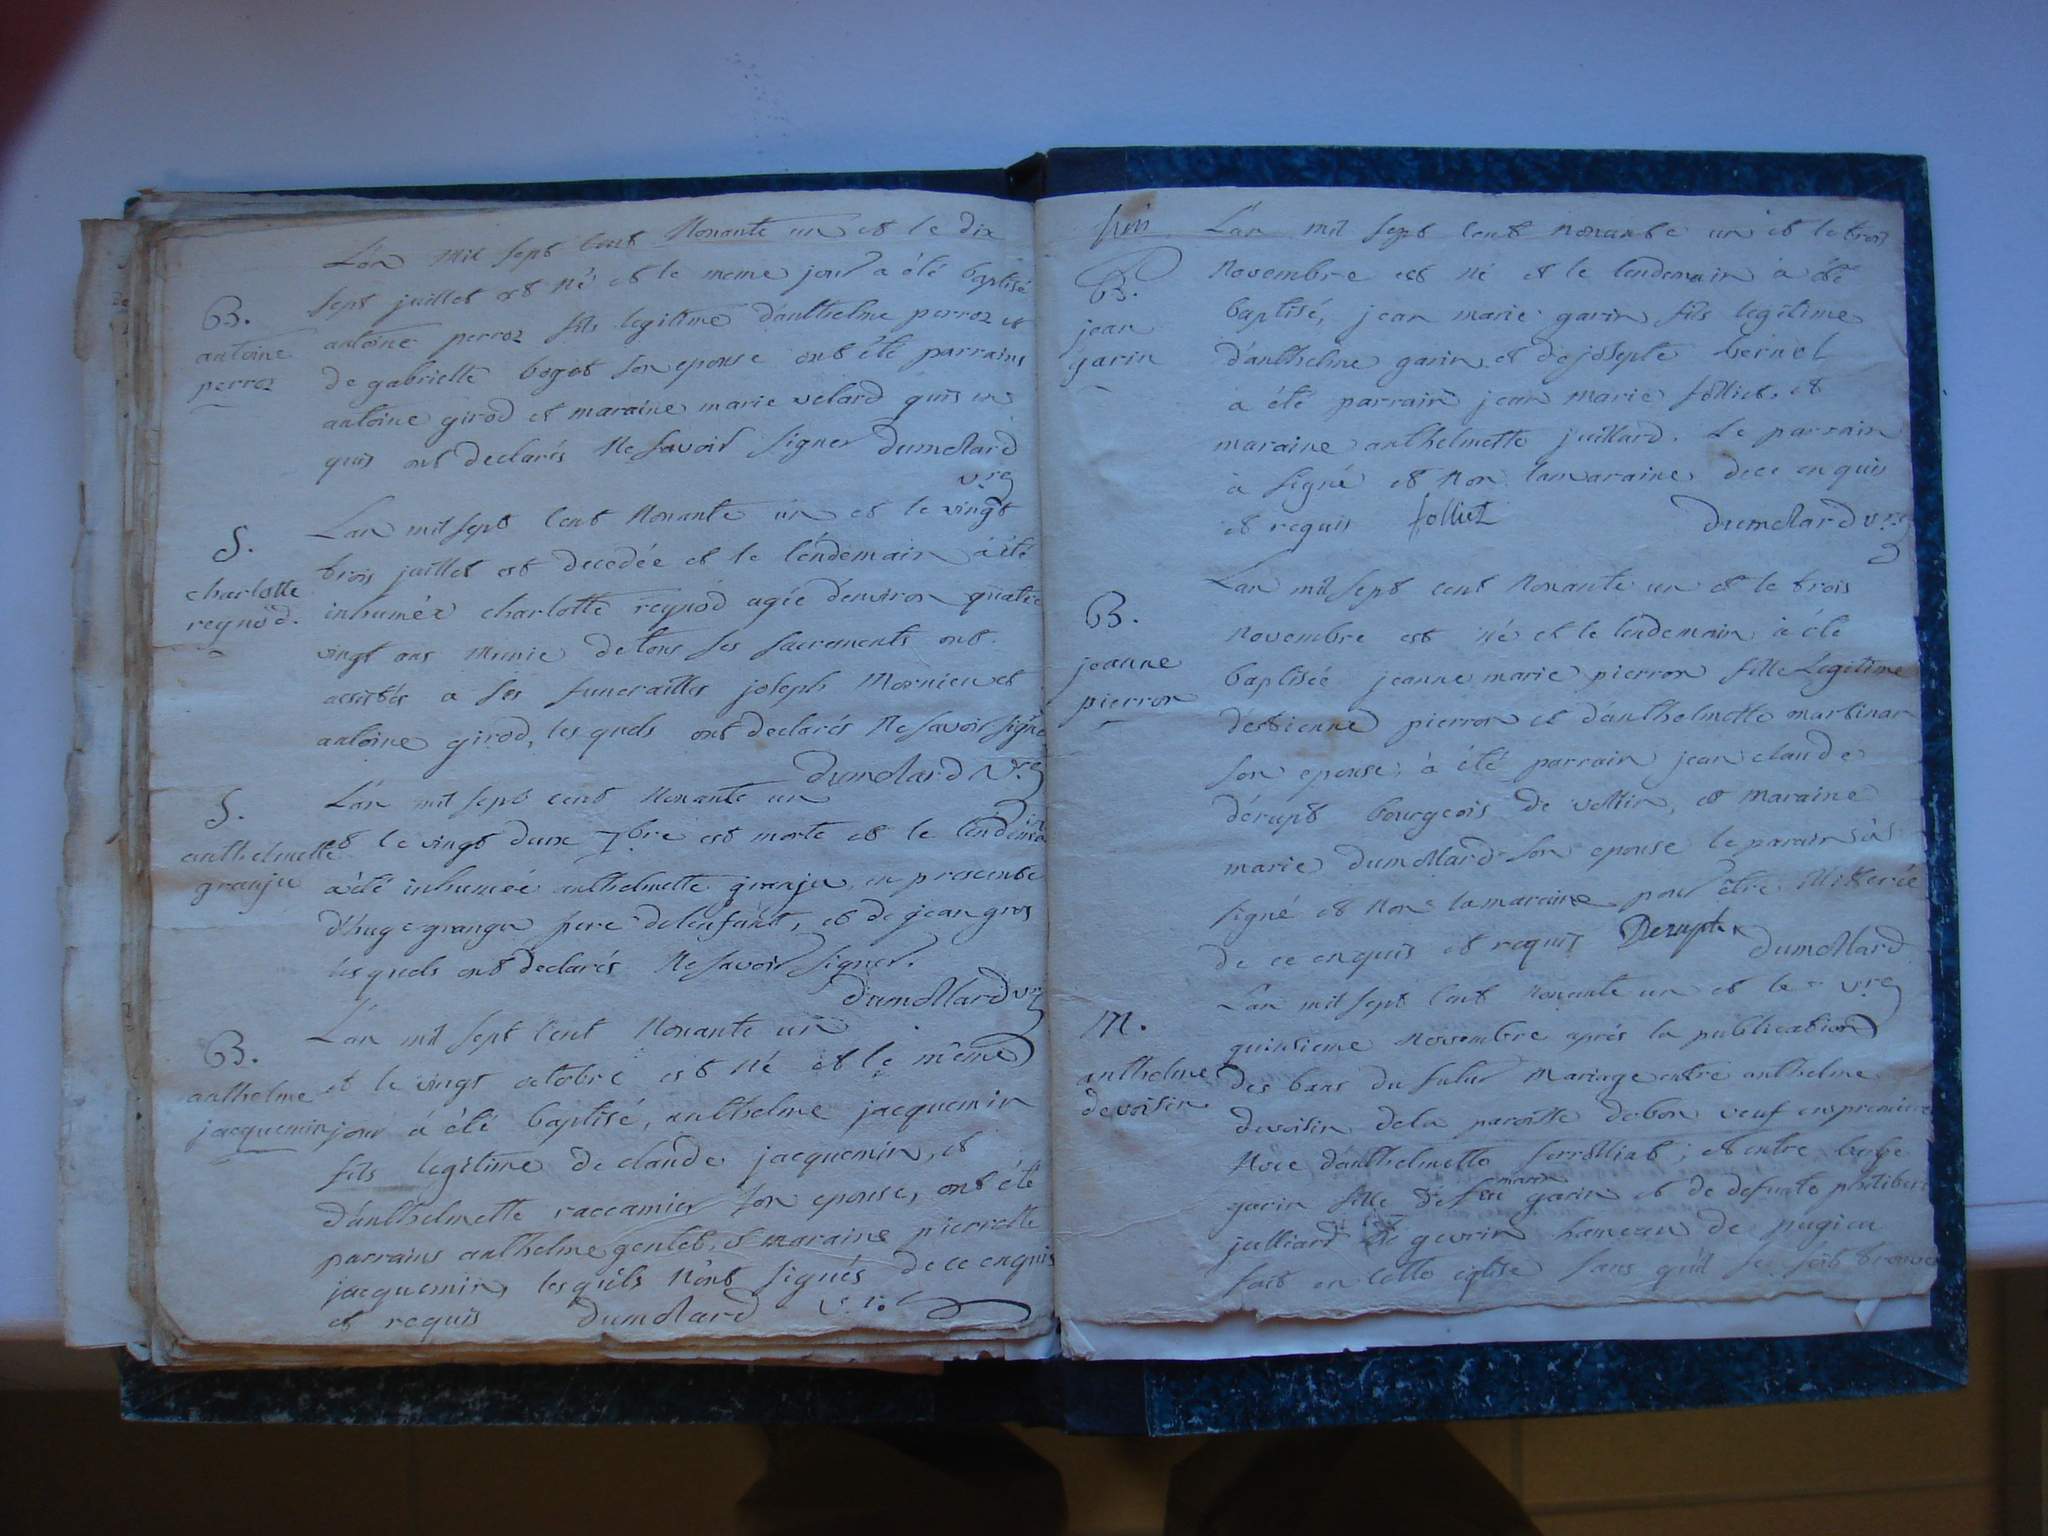 L'an mil sept cent Nonante un et le dix
B.
antoine
perroz
sept juillet est né et le meme jour a été baptisé
antoine perroz fils legitime d'anthelme perroz et
de gabrielle bogot son epouse ont été parrains
antoine girod et maraine marie velard quis en
quis ont declarés Ne savoir signer Dumollard
vre
S.
charlotte
reynod.
L'an mil sept cent Nonante un et le vingt
trois juillet est decedée et le lendemain a été
inhumée charlotte reynod agée d'environ quatre
vingt ans Munie de tous ses sacrements ont
assistés a ses funerailles joseph Mornieu et
antoine girod, les quels ont declarés Ne savoir signe
Dumollard vre
S.
anthelmette
granju
L'an mil sept cent Nonante un
et le vingt deux 7bre est morte et le lendemain
a été inhumée anthelmette granju en presence
d'huge granju pere de lenfant, et de jean gros
les quels ont declarés Ne savoir signer.
Dumollard vre
B.
anthelme
jacquemin
L'an mil sept cent Nonante un
et le vingt octobre est né et le même
jour a été baptisé, anthelme jacquemin
fils legitime de claude jacquemin, et
d'anthelmette raccamier son epouse, ont été
parrains anthelme gentet, et maraine pierrette
jacquemin, les quels N'ont signés de ce enquis
et requis Dumollard vre
B.
jean
garin
L'an mil sept cent Nonante un et le trois
Novembre est né et le lendemain a été
baptisé, jean marie garin fils legitime
d'anthelme garin et de josephte bernel
a été parrain jean marie folliet, et
maraine anthelmette juillard. Le parrain
a signé et Non la maraine de ce enquis
et requis folliet Dumollard vre
B.
jeanne
pierron
L'an mil sept cent Nonante un et le trois
Novembre est né et le lendemain a été
baptisée jeanne marie pierron fille Legitime
d'estienne pierron et d'anthelmette martinan
son epouse, a été parrain jean claude
derupt bourgeois de vettin, et Maraine
marie dumollard son epouse le parain a
signé et Non la maraine pour être illitterée
de ce enquis et requis Derupt Dumollard
vre
M.
anthelme
devoisin
L'an mil sept cent Nonante un et le
quinsieme Novembre après la publication
des bans du futur Mariage entre anthelme
devoisin de la paroisse debon veuf en premiere
Noce d'anthelmette ferrolliat; et entre
garin fille de feu garin et de defunte philiberte
julliard de gevrin hameau de pugieu
fait en cette eglise sans qu'il se soit trouvé